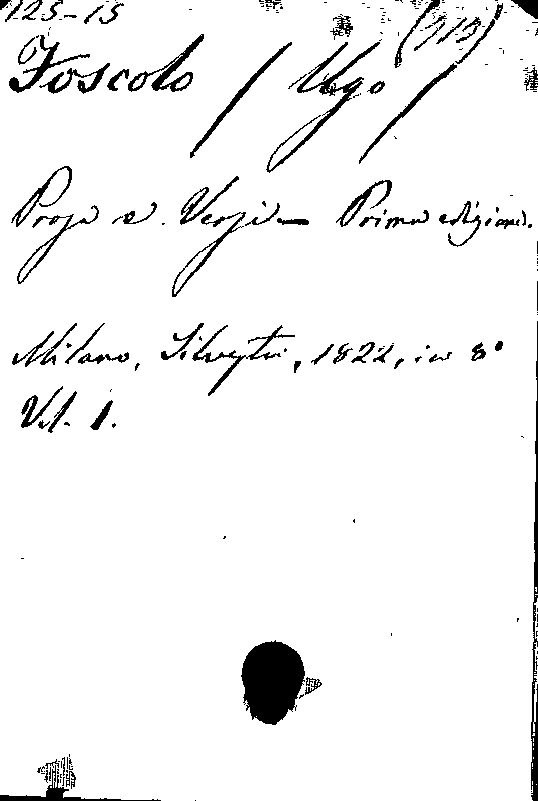 125-15
(313)
Foscolo / Ugo /
Prose e Versi — Prima edizione.
Milano, Silvestri, 1822, in 8°
Vol. 1.